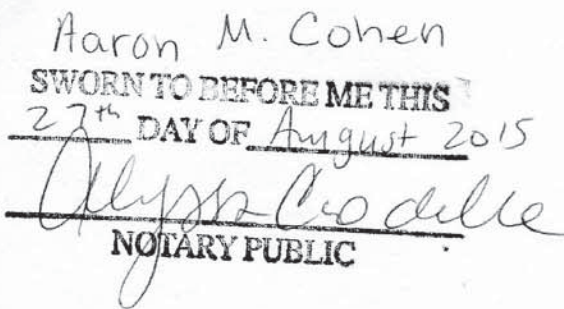 Aaron M. Cohen
SWORN TO BEFORE ME THIS
27th DAY OF August 2015
Alyssa
NOTARY PUBLIC